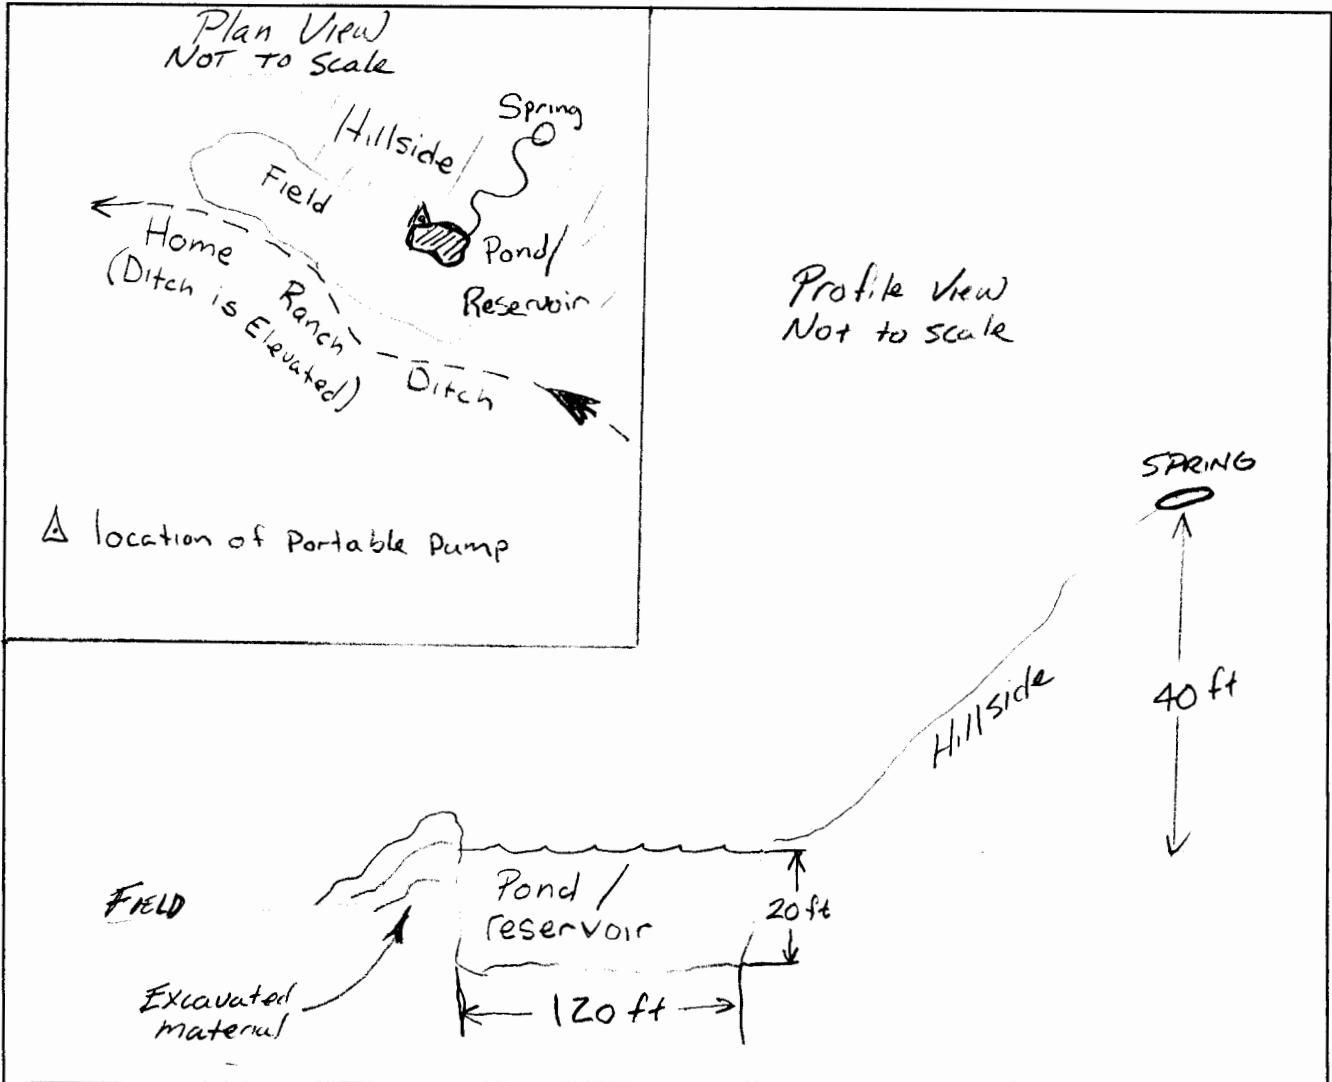 Plan View
NOT TO Scale
Spring
Hillside
Field
Pond/
Reservoir
Home Ranch Ditch
(Ditch is Elevated)
location of Portable Pump
Profile View
Not to scale
SPRING
40 ft
Hillside
FIELD
Pond /
reservoir
20 ft
Excavated
material
120 ft